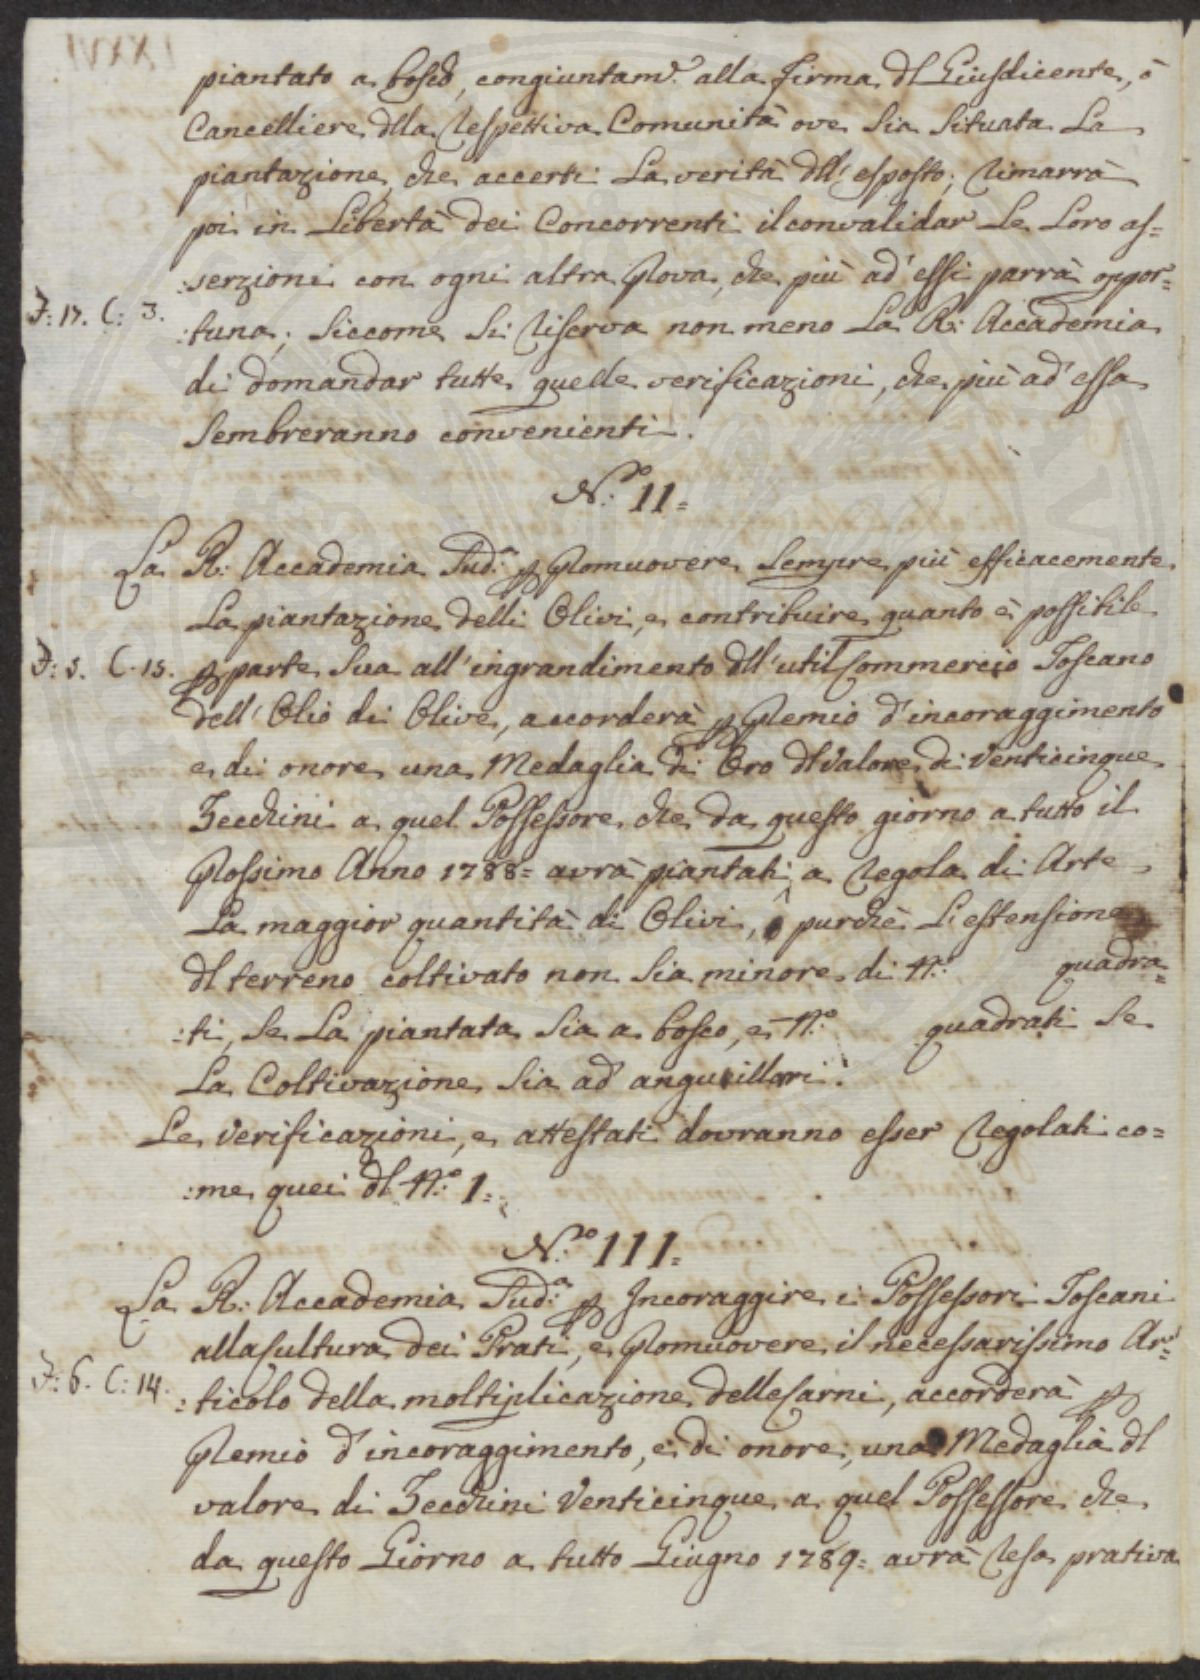 piantato a bosco, congiuntam.e alla firma dl Giusdicente, ò
Cancelliere dlla respettiva Comunità ove sia situata la
piantazione, che accerti la verità dll' esposto; rimarrà
poi in libertà dei Concorrenti il convalidar le loro as=
:serzioni con ogni altra prova, che più ad' essi parrà oppor=
F: 17. C: 3.
:tuna; siccome si riserva non meno la R: Accademia
di domandar tutte quelle verificazioni, che più ad' essa
sembreranno convenienti.
N.o 11=
La R: Accademia Sud.a p promuovere sempre più efficacemente
la piantazione delli Olivi, e contribuire quanto è possibile
F: 5. C. 15.
p parte sua all' ingrandimento dll' util Commercio Toscano
dell' Olio di Olive, accorderà p premio d' incoraggimento
e di onore una Medaglia di Oro dl valore di Venticinque
Zecchini a quel Possessore che da questo giorno a tutto il
prossimo Anno 1788= avrà piantati a regola di Arte
la maggior quantità di Olivi, purchè l' estensione
dl terreno coltivato non sia minore di N.o quadra=
:ti, se la piantata sia a bosco, e N.o quadrati se
la Coltivazione sia ad' anguillari.
Le verificazioni, e attestati dovranno esser regolati co=
:me quei dl N.o 1=
N.o 111=
La R: Accademia Sud.a p Incoraggire i Possessori Toscani
alla Cultura dei Prati, e promuovere il necessarissimo Ar=
F: 6. C: 14.
:ticolo della moltiplicazione delle Carni, accorderà p
premio d' incoraggimento, e di onore, una Medaglia dl
valore di Zecchini Venticinque a quel Possessore che
da questo Giorno a tutto Giugno 1789= avrà resa prativa